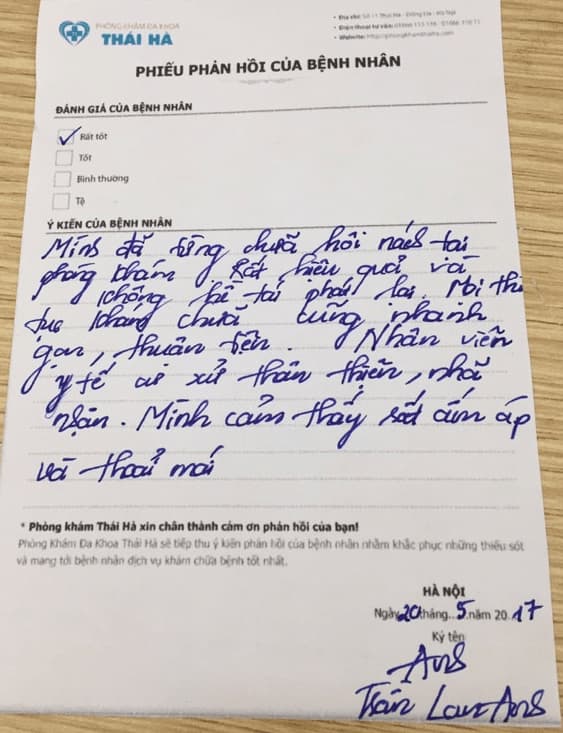 PHÒNG KHÁM ĐA KHOA
THÁI HÀ
• Địa chỉ: Số 11 Thái Hà - Đống Đa - Hà Nội
• Điện thoại tư vấn:
• Website: http://phongkhamthaiha.com
PHIẾU PHẢN HỒI CỦA BỆNH NHÂN
ĐÁNH GIÁ CỦA BỆNH NHÂN
Rất tốt
Tốt
Bình thường
Tệ
Ý KIẾN CỦA BỆNH NHÂN
Mình đã từng chữa hôi nách tại
phòng khám rất hiệu quả và
không tái phát lại. Mọi thủ
tục khám chữa cũng nhanh
gọn, thuận tiện. Nhân viên
y tế cư xử thân thiện, nhã
nhặn. Mình cảm thấy rất ấm áp
và thoải mái
* Phòng khám Thái Hà xin chân thành cảm ơn phản hồi của bạn!
Phòng Khám Đa Khoa Thái Hà sẽ tiếp thu ý kiến phản hồi của bệnh nhân nhằm khắc phục những thiếu sót
và mang tới bệnh nhân dịch vụ khám chữa bệnh tốt nhất.
HÀ NỘI
Ngày 20 tháng 5 năm 2017
Ký tên
Anh
Trần Lan Anh